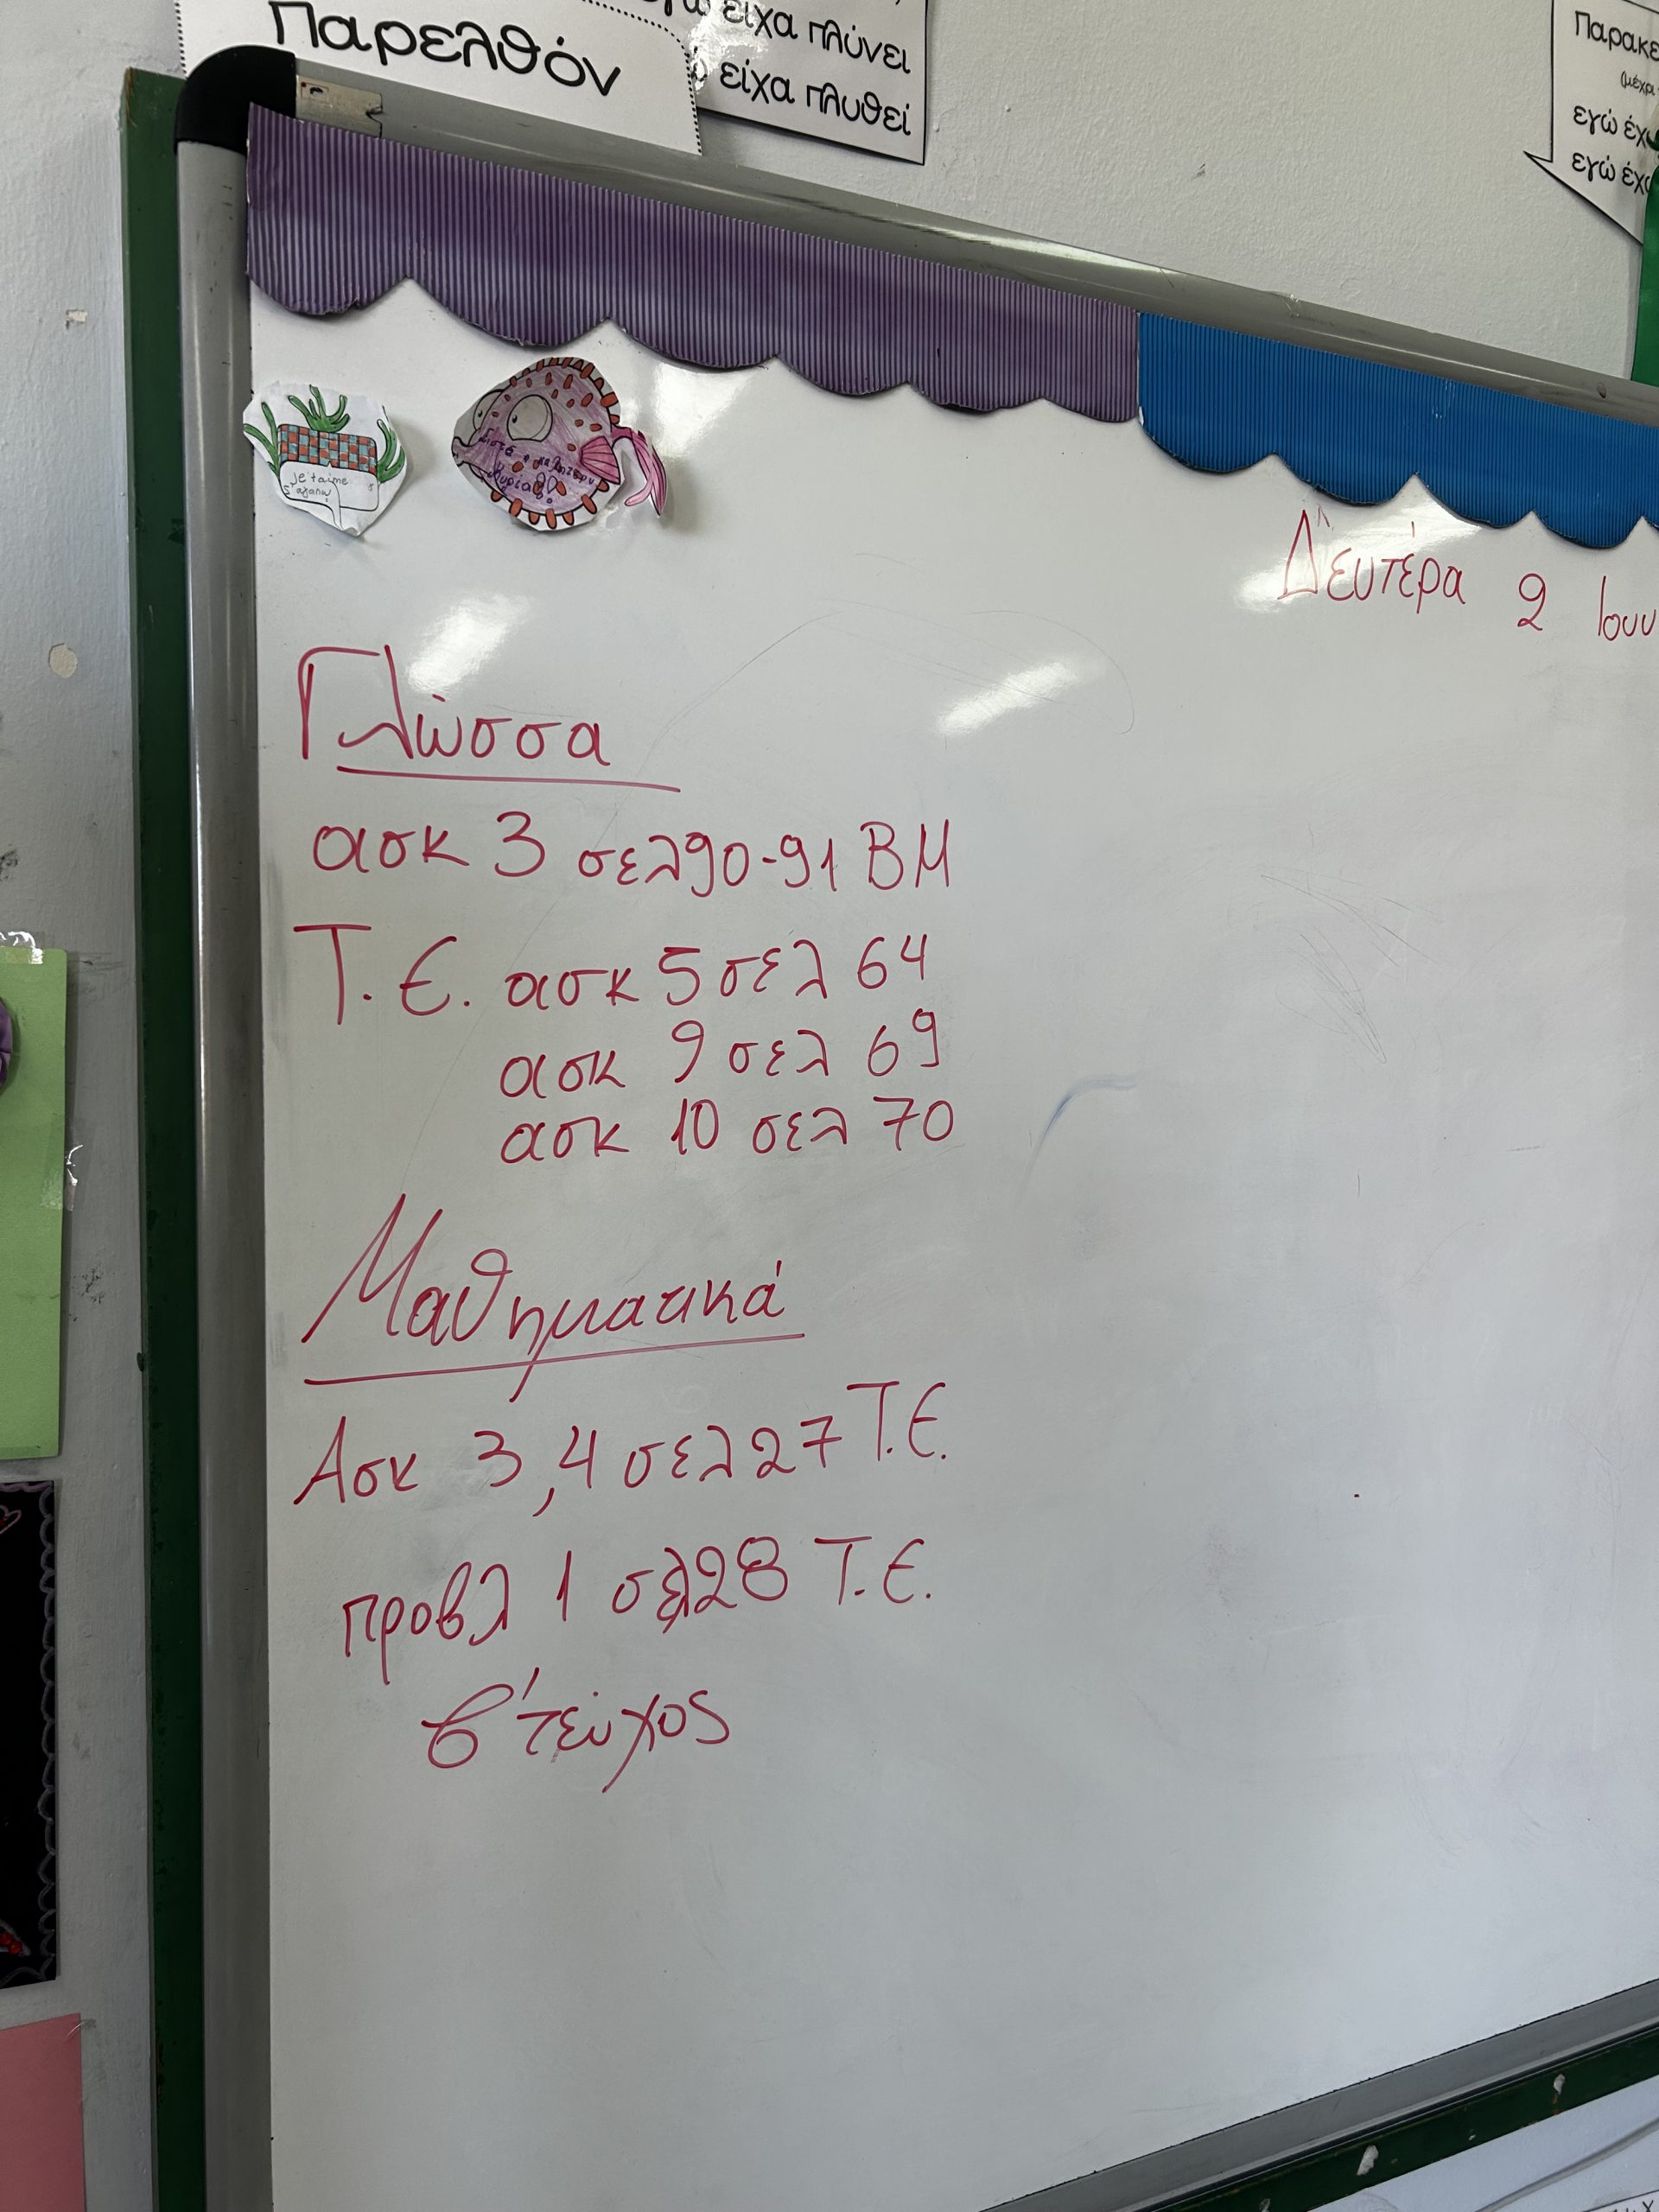 Παρελθόν
είχα πλύνει
είχα πλυθεί
Παρακε
(μέχρι
εγώ έχ
εγώ έχ
je t'aime
σ'αγαπώ
Δευτέρα 2 Ιουν
Γλώσσα
ασκ 3 σελ90-91 ΒΜ
Τ.Ε. ασκ 5 σελ 64
ασκ 9 σελ 69
ασκ 10 σελ 70
Μαθηματικά
Ασκ 3,4 σελ27 Τ.Ε.
προβλ 1 σελ28 Τ.Ε.
β' τεύχος